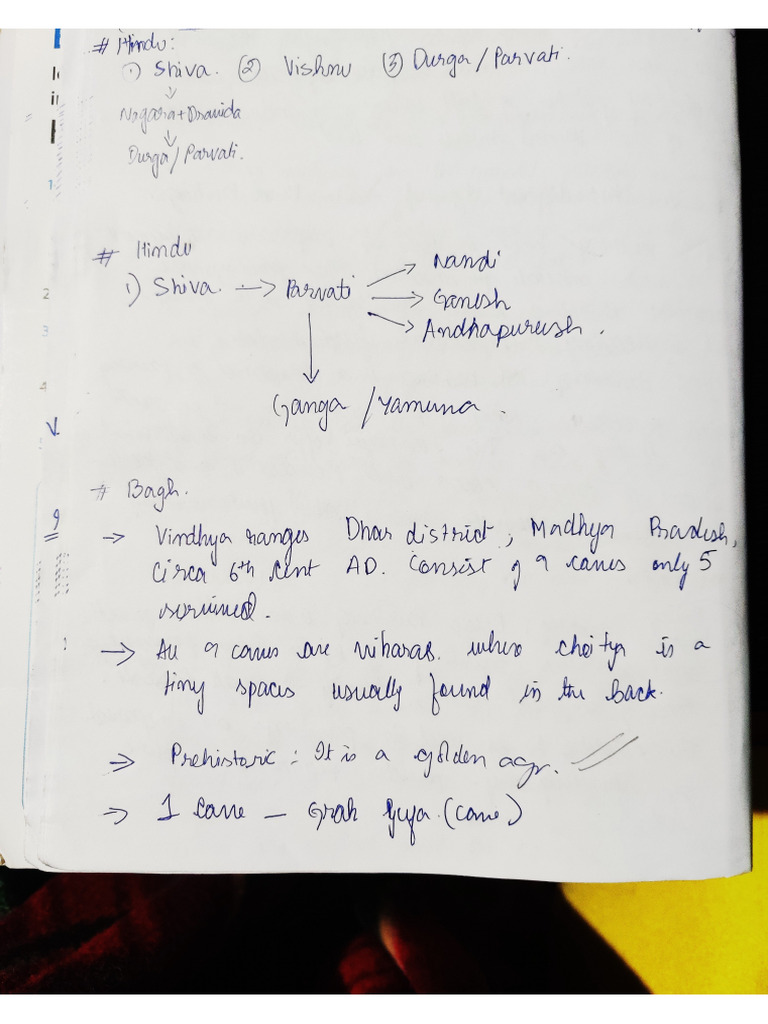 # Hindu:
1) Shiva. ② Vishnu ③ Durga/Parvati.
↓
Nagara+Dravida
↓
Durga/Parvati.
# Hindu
1) Shiva. → Parvati → Nandi
→ Ganesh
→ Andhapurush.
↓
Ganga / Yamuna.
# Bagh.
→ Vindhya ranges Dhar district, Madhya Pradesh,
Circa 6th Cent AD. Consist of 9 caves only 5
survived.
→ All 9 caves are viharas. where chaitya is a
tiny spaces usually found in the back.
→ Prehistoric: It is a golden age.
→ 1 Cave – Grah Gufa. (Cave)
2
3
4
V.
9